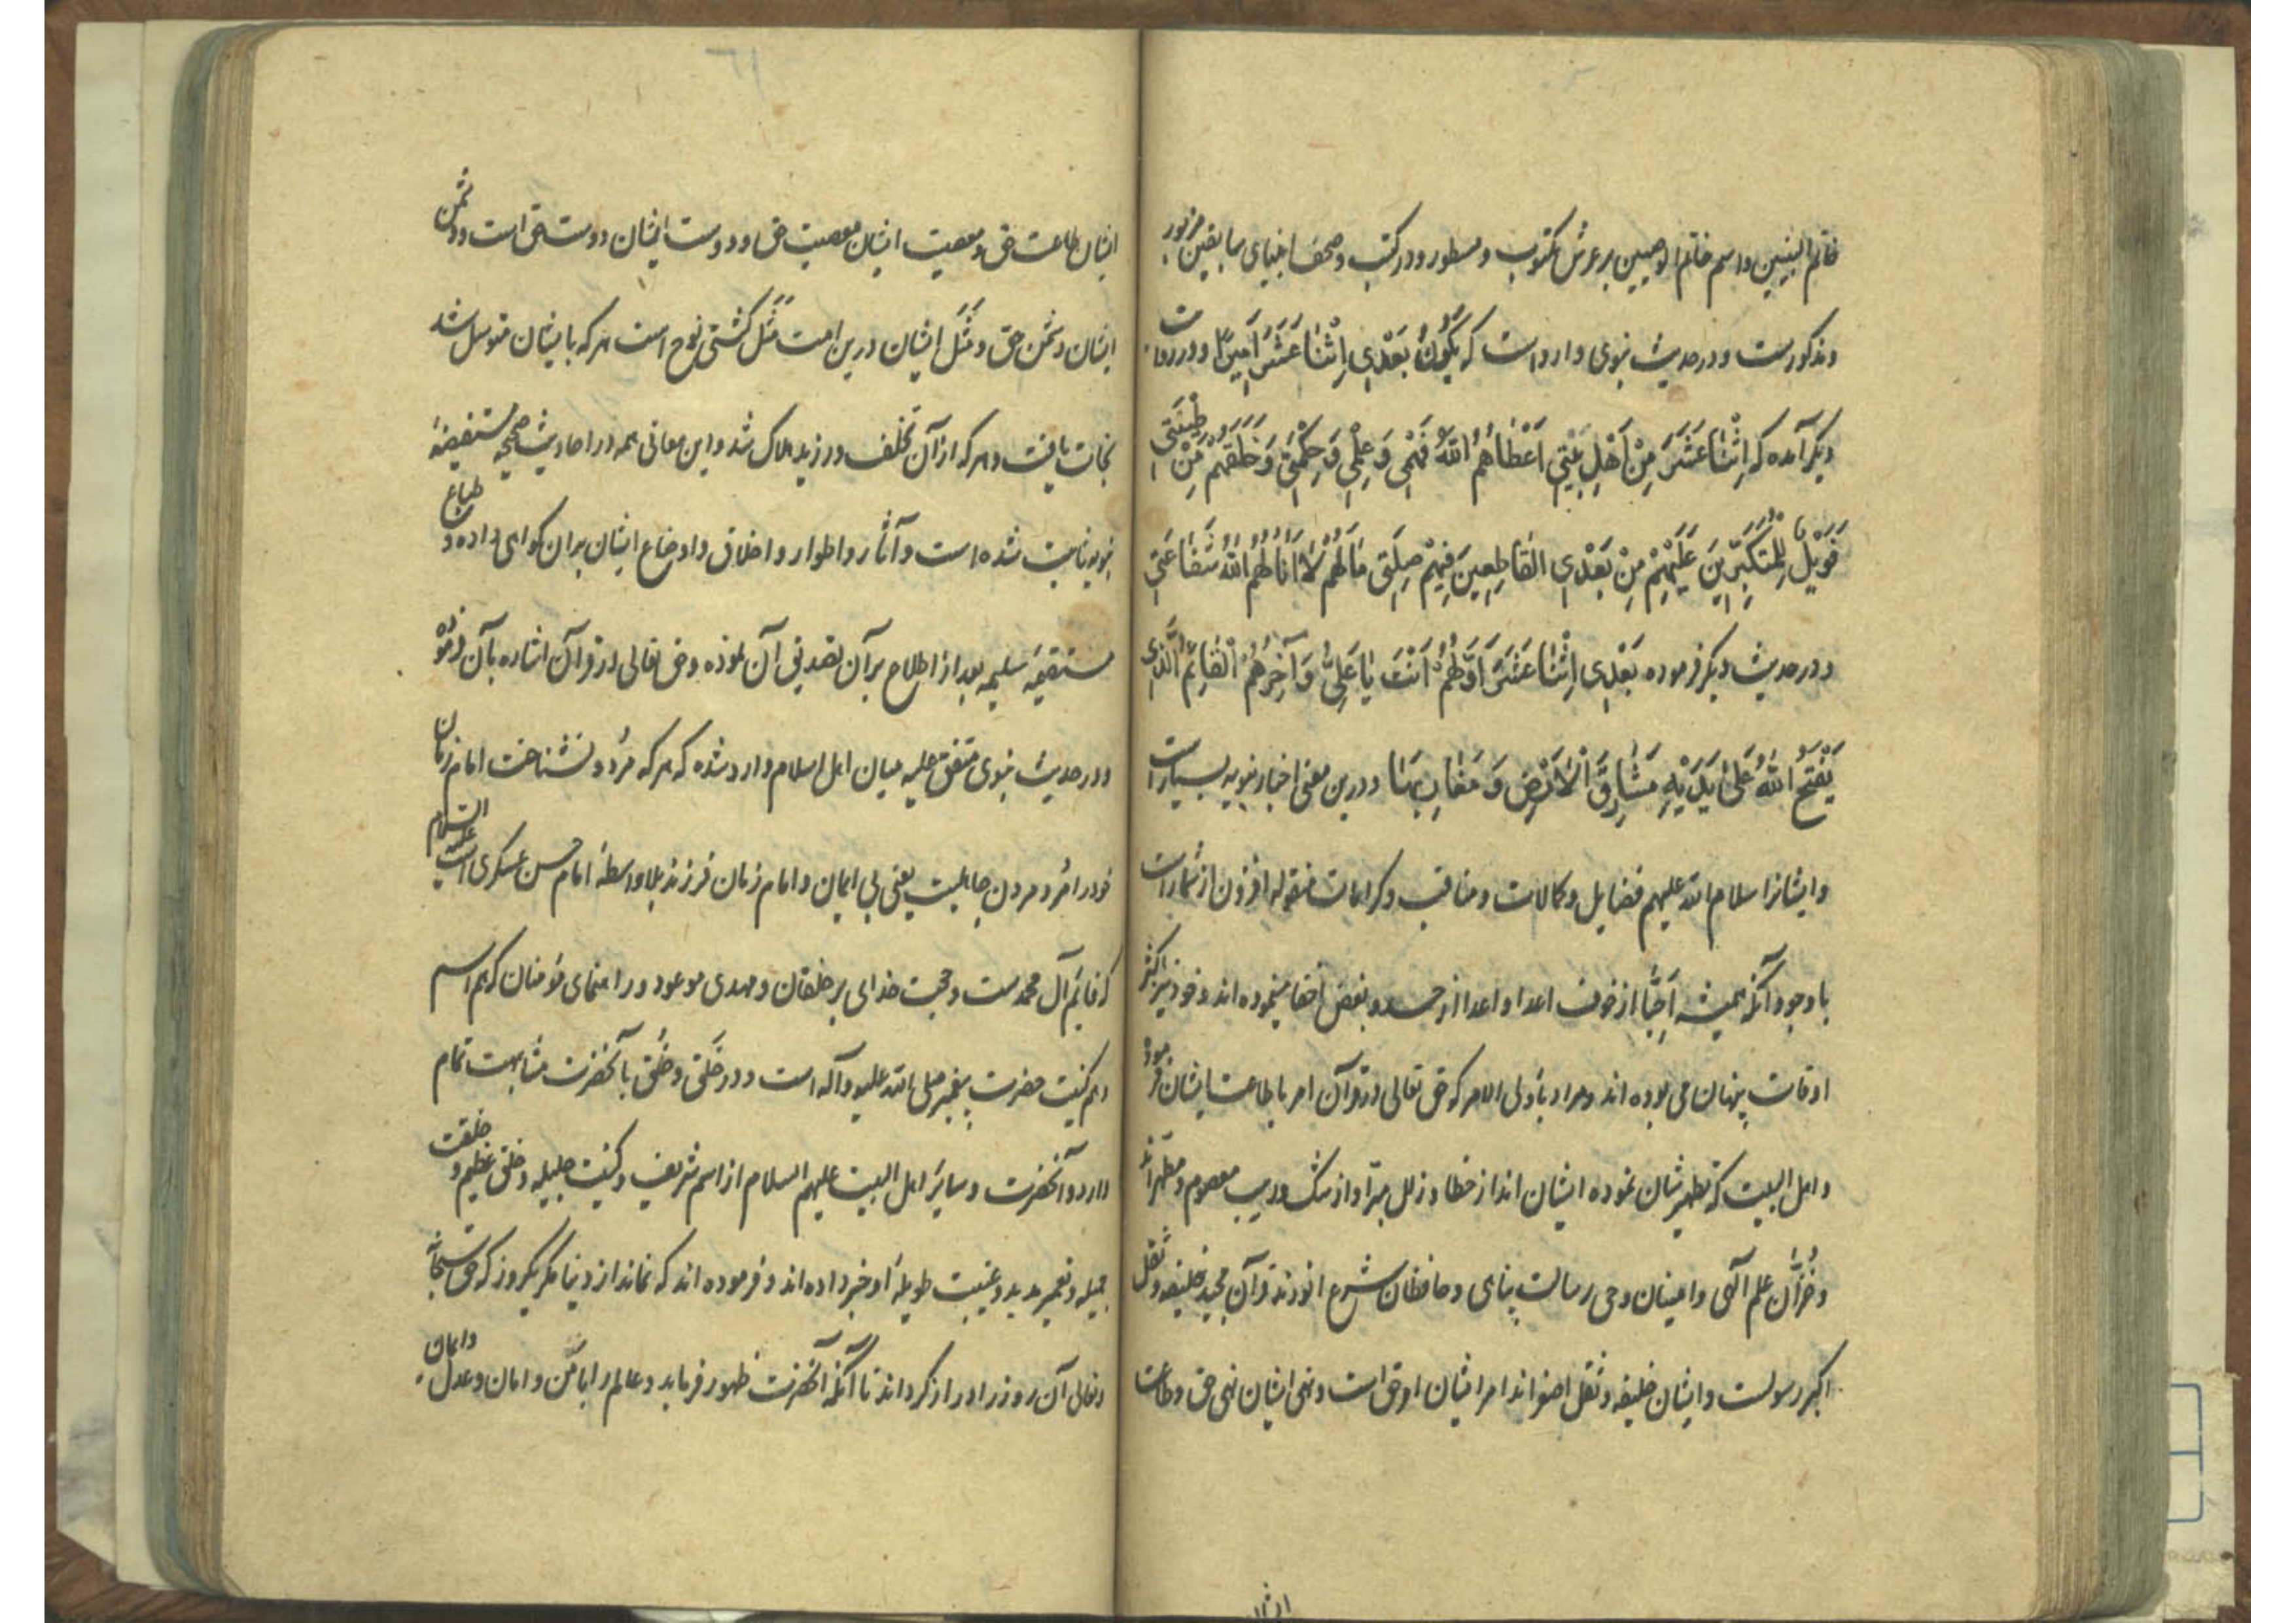 خاتم النبیین و اسم خاتم الوصیین بر عرش مکتوب و مسطور و در کتب و صحف انبیای سابقین مزبور
و مذکورست و در حدیث نبوی وارد است که یَکُونُ بَعْدِی اِثْنٰا عَشَرَ اَمِیرًا و در روایت
دیگر آمده که اِثْنٰا عَشَرَ مِنْ اَهْلِ بَیْتِی اَعْطٰاهُمُ اللّٰهُ فَهْمِی وَ عِلْمِی وَ حِکْمَتِی وَ خَلَقَهُمْ مِنْ طِینَتِی
فَوَیْلٌ لِلْمُتَکَبِّرِینَ عَلَیْهِمْ مِنْ بَعْدِی القٰاطِعِینَ فِیهِمْ صِلَتِی مٰا لَهُمْ لٰا اَنٰالَهُمُ اللّٰهُ شَفٰاعَتِی
و در حدیث دیگر فرموده بَعْدِی اِثْنٰا عَشَرَ اَوَّلُهُمْ اَنْتَ یٰا عَلِیُّ وَ آخِرُهُمُ الْقٰایِمُ الَّذِی
یَفْتَحُ اللّٰهُ عَلٰی یَدَیْهِ مَشٰارِقَ الْاَرْضِ وَ مَغٰارِبَهٰا و درین معنی اخبار نبویه بسیار است
و ایشانرا سلام الله علیهم فضایل و کمالات و مناقب و کرامات منقوله افزون از شمار است
با وجود آنکه همیشه اَحِبّا از خوف اعدا و اعدا از حسد و بغض اخفا مینموده اند و خود نیز اکثر
اوقات پنهان می بوده اند و مراد باولی الامر که حق تعالی در قرآن امر باطاعت ایشان فرموده
و اهل البیت که تطهیرشان نموده ایشان اند از خطا و زلل مبرّا و از شک و ریب معصوم و مطهر اند
و خُزّان علم الهی و امینان وحی رسالت پناهی و حافظان شرع انورند قرآن مجید خلیفه و ثقل
اکبر رسولست و ایشان خلیفه و ثقل اصغر اند امر ایشان امر حق است و نهی ایشان نهی حق و طاعت
ایشان
٦١
ایشان طاعت حق و معصیت ایشان معصیت حق و دوست ایشان دوست حق است و دشمن
ایشان دشمن حق و مَثَل ایشان درین امت مَثَل کشتی نوح است هر که بایشان متوسل شد
نجات یافت و هر که از آن تخلف ورزید هلاک شد و این معانی همه در احادیث صحیحهٔ مستفیضهٔ
نبویه ثابت شده است و آثار و اطوار و اخلاق و اوضاع ایشان بران کواهی داده و طباع
مستقیمهٔ سلیمه بعد از اطلاع بر آن تصدیق آن نموده و حق تعالی در قرآن اشاره بآن فرموده
و در حدیث نبوی متفق علیه میان اهل اسلام وارد شده که هر که مُرد و نشناخت امام زمان
خود را مُرد مردن جاهلیت یعنی بی ایمان و امام زمان فرزند بلا واسطهٔ امام حسن عسکری است علیه السلام
که قایم آل محمدست و حجت خدای بر خلقان و مهدی موعود و راهنمای مؤمنان که هم اسم
و هم کنیت حضرت پیغمبر صلی الله علیه و آله است و در خَلق و خُلق بآنحضرت مشابهت تمام
دارد و آنحضرت و سایر اهل البیت علیهم السلام از اسم شریف و کنیت جلیله و خلق عظیم و خلقت
جمیله و تعمیر مدید و غیبت طویلهٔ او خبر داده اند و فرموده اند که نماند از دنیا مگر یکروز که حق سبحانه
و تعالی آن روز را دراز کرداند تا آنکه آنحضرت ظهور فرماید و عالم را با من و امان و عدل و ایمان